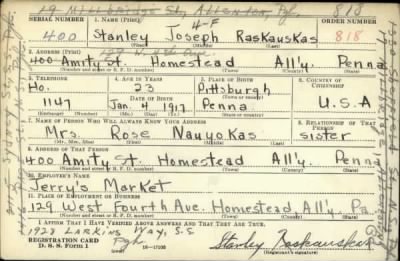 19 Millbridge St, Allentown, Pgh. 818
SERIAL NUMBER 1. NAME (Print) 4-F ORDER NUMBER
400 Stanley Joseph Raskauskas 818
(First) (Middle) (Last)
2. ADDRESS (Print)
400 Amity St. Homestead All'y. Penna
(Number and street or R. F. D. number) (Town) (County) (State)
3. TELEPHONE 4. AGE IN YEARS 5. PLACE OF BIRTH 6. COUNTRY OF CITIZENSHIP
Ho. 23 Pittsburgh
DATE OF BIRTH
1147 Jan. 4 1917 Penna U.S.A
7. NAME OF PERSON WHO WILL ALWAYS KNOW YOUR ADDRESS 8. RELATIONSHIP OF THAT PERSON
Mrs. Rose Nauyokas sister
(Mr., Mrs., Miss) (First) (Middle) (Last)
9. ADDRESS OF THAT PERSON
400 Amity St. Homestead All'y. Penna
(Number and street or R. F. D. number) (Town) (County) (State)
10. EMPLOYER'S NAME
Jerry's Market
11. PLACE OF EMPLOYMENT OR BUSINESS
129 West Fourth Ave. Homestead All'y. Pa.
(Number and street or R. F. D. number) (Town) (County) (State)
I AFFIRM THAT I HAVE VERIFIED ABOVE ANSWERS AND THAT THEY ARE TRUE.
1928 Larkins Way, S.S. Pgh
REGISTRATION CARD
D. S. S. Form 1 16-17105 Stanley Raskauskas
(Registrant's signature)